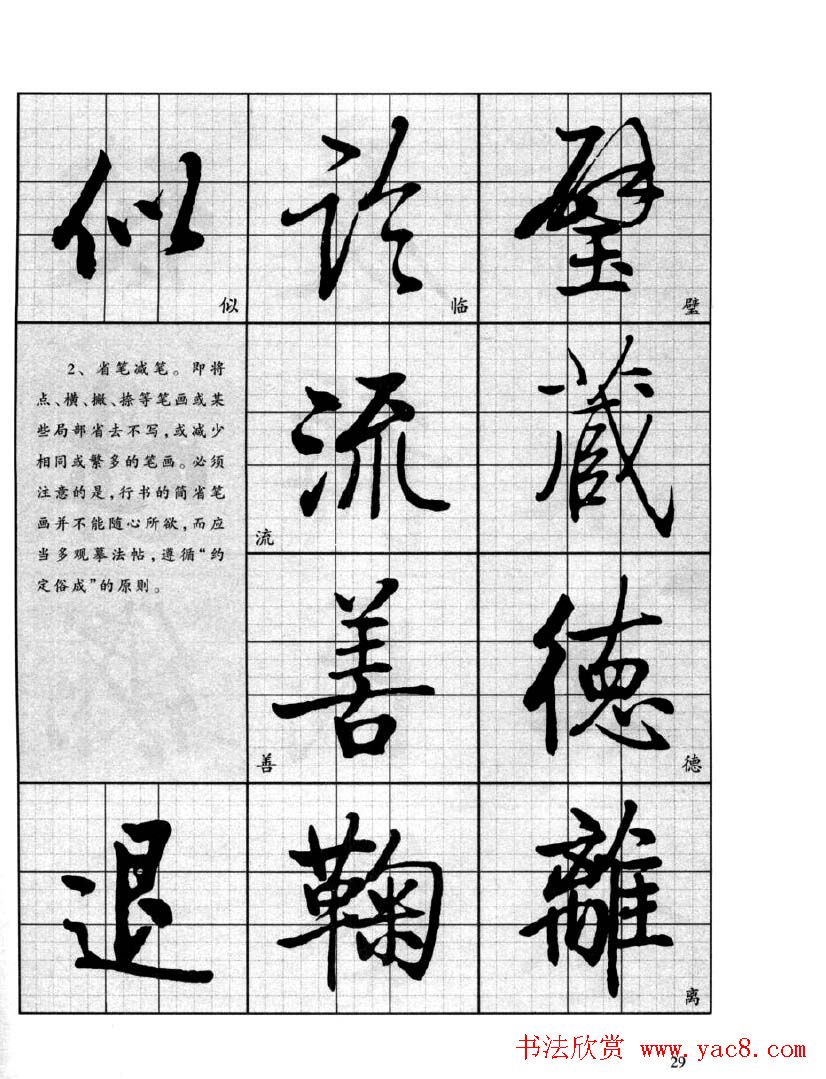 似 璧
似 临 璧
2、省笔减笔。即将
点、横、撇、捺等笔画或某
些局部省去不写，或减少
相同或繁多的笔画。必须
注意的是，行书的简省笔
画并不能随心所欲，而应
当多观摹法帖，遵循“约
定俗成”的原则。
流 藏
流
善 德
善 德
退 鞠 離
离
29
书法欣赏 www.yac8.com